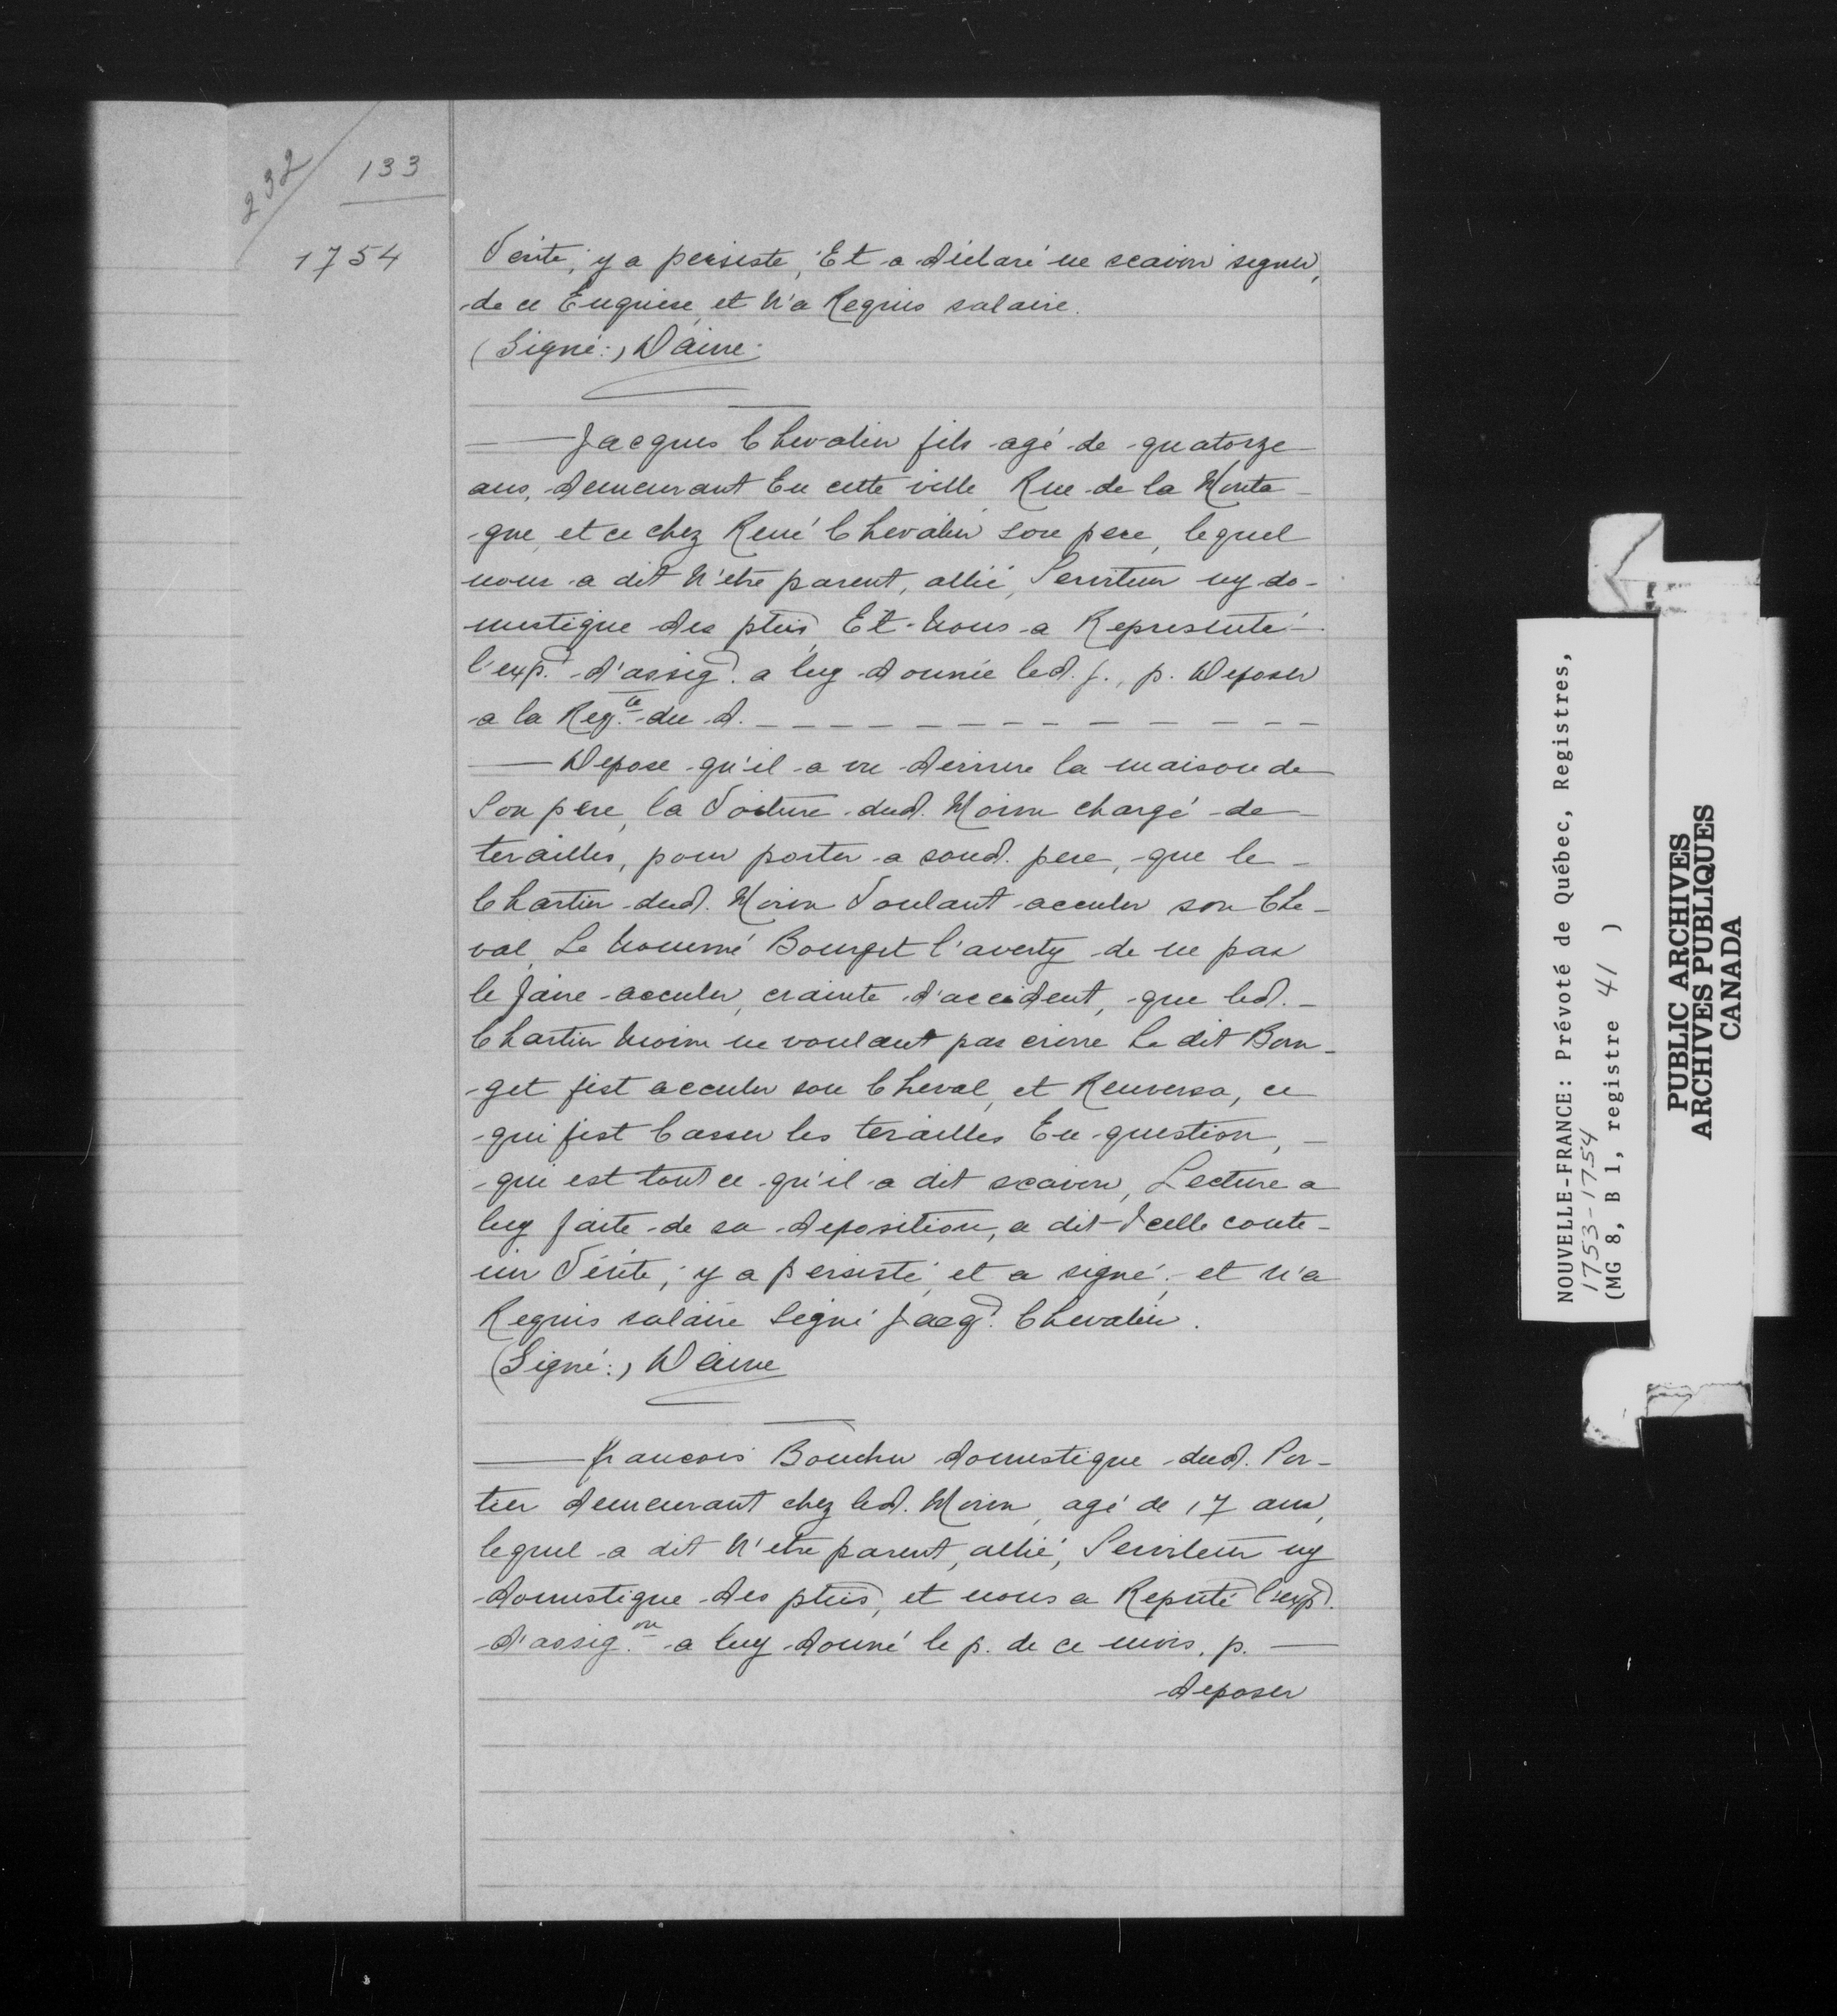 232
133
1754
Vérité, y a persisté, Et a déclaré ne scavoir signer,
de ce Enquise, et N'a Requis salaire.
(Signé:) Daine.
Jacques Chevalier fils agé de quatorze
ans, demeurant En cette ville, Rue de la Monta-
-gne, et ce chez René Chevalier son pere, lequel
nous a dit N'etre parent, allié, Serviteur ny do-
mestique des pties, Et Nous a Representé
l'exp. d'assig. a luy donnée led. j., p. Deposer
a la Reqte du d.
Depose qu'il a vu derriere la maison de
Son pere, la Voiture dud. Morin chargé de
terailles, pour porter a soud. pere, que le
Chartier dud. Morin Voulant acculer son Che-
val, Le Nommé Bourget l'averty de ne pas
le faire acculer, crainte d'accident, que led.
Chartier Morin ne voulant pas crirre Le dit Bour-
-get fist acculer son Cheval, et Renversa, ce
qui fist Casser les terailles En question,
qui est tout ce qu'il a dit scavoir, Lecture a
luy faite de sa deposition, a dit Icelle conte-
nir Vérité; y a persisté, et a signé, et N'a
Requis salaire Signé Jacq. Chevalier.
(Signé:) Daine
francois Boucher domestique dud. Por-
tier demeurant chez led. Morin, agé de 17 ans,
lequel a dit N'etre parent, allié, Serviteur ny
domestique des pties, et nous a Repnté l'exp.
d'assig.on a luy donné le p. de ce mois, p.
deposer
NOUVELLE-FRANCE: Prévoté de Québec, Registres,
1753-1754
(MG 8, B 1, registre 41 )
PUBLIC ARCHIVES
ARCHIVES PUBLIQUES
CANADA